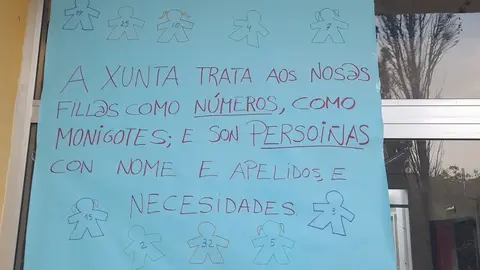 25
10
4
2
A XUNTA TRATA AOS NOS@S
FILL@S COMO NÚMEROS, COMO
MONIGOTES; E SON PERSOIÑAS
CON NOME E APELIDOS, E
NECESIDADES
15
2
32
5
3